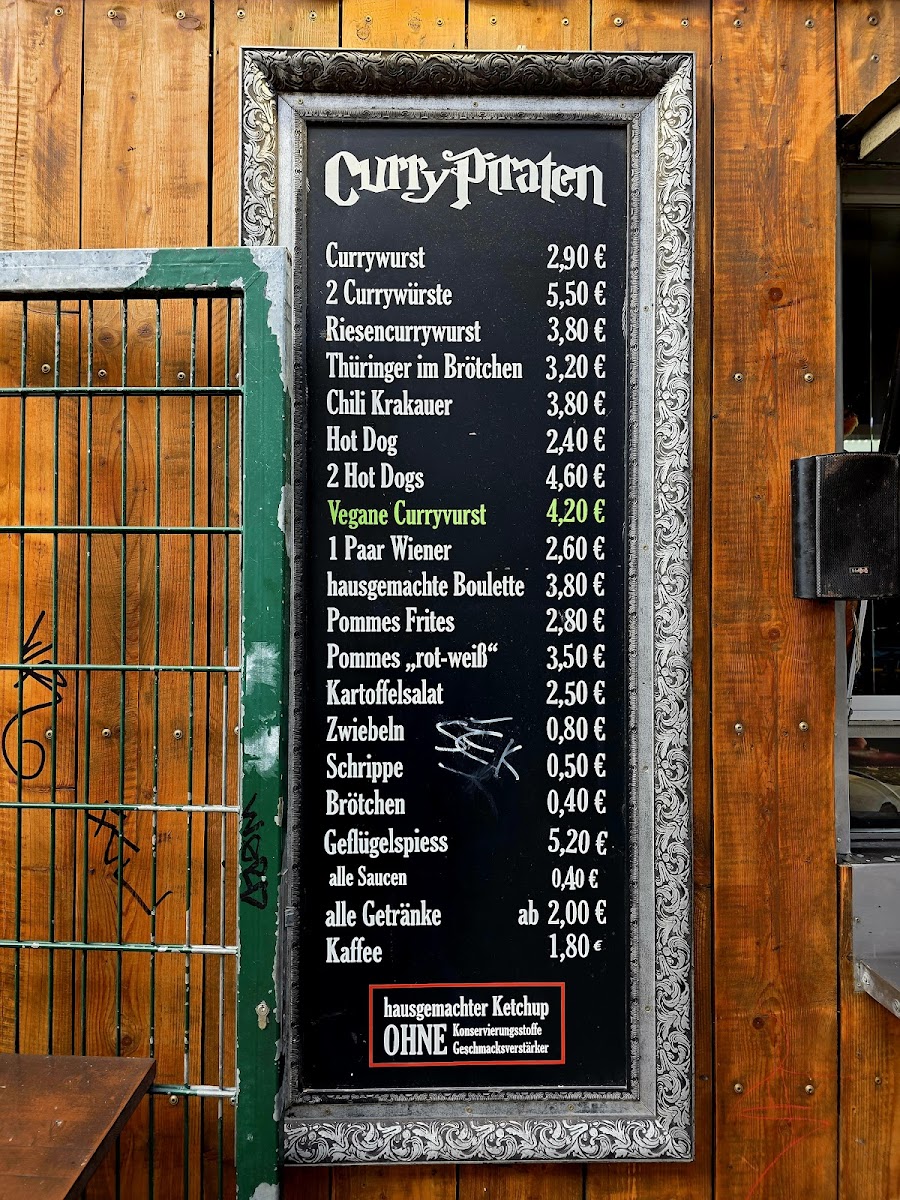 Curry Piraten
Currywurst 2,90 €
2 Currywürste 5,50 €
Riesencurrywurst 3,80 €
Thüringer im Brötchen 3,20 €
Chili Krakauer 3,80 €
Hot Dog 2,40 €
2 Hot Dogs 4,60 €
Vegane Curryvurst 4,20 €
1 Paar Wiener 2,60 €
hausgemachte Boulette 3,80 €
Pommes Frites 2,80 €
Pommes „rot-weiß“ 3,50 €
Kartoffelsalat 2,50 €
Zwiebeln 0,80 €
Schrippe 0,50 €
Brötchen 0,40 €
Geflügelspiess 5,20 €
alle Saucen 0,40 €
alle Getränke ab 2,00 €
Kaffee 1,80 €
hausgemachter Ketchup
OHNE Konservierungsstoffe
Geschmacksverstärker